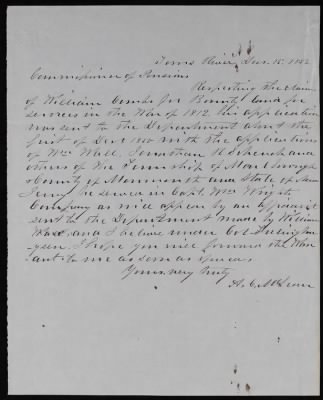 Toms River Dec. 15. 1852
Commissioner of Pensions
Respecting the claim
of William Combs for Bounty land for
services in the War of 1812 his application
was sent to the Department about the
first of Dec 1850 with the applications
of Wm Wall, Jonathan H Schenck and
others of the Township of
County of Monmouth and State of New
Jersey he served in Capt. Wm Wrights
Company as will appear by an affidavit
sent to the Department made by William
Wall, and I believe under Col
I hope you will forward the Warr
ant to me as soon as
Yours very truly
A. C. McLean